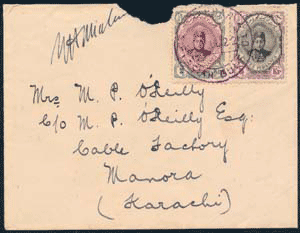 Mrs M. P. O'Reilly
C/o M. P. O'Reilly Esq:
Cable Factory
Manora
(Karachi)